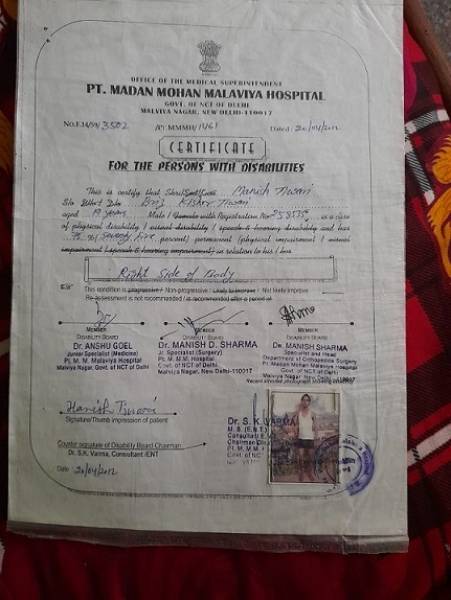 OFFICE OF THE MEDICAL SUPERINTENDENT
PT. MADAN MOHAN MALAVIYA HOSPITAL
GOVT. OF NCT OF DELHI
MALVIYA NAGAR, NEW DELHI-110017
Dated : 20/04/2012
CERTIFICATE
FOR THE PERSONS WITH DISABILITIES
This is certify that Shri/Smt/ Manish Tiwari
Brij Kishor Tiwari
aged 19 years Male / Female with Registration No. as a case
of physical disability / visual disability / speech & hearing disability and has
percent) permanent (physical impairment / visual
impairment / speech & hearing impairment) in relation to his / her
Right Side of Body
This condition is progressive / Non-progressive / Likely to improve / Not likely improve
Re-assessment is not recommended / is recommended after a period of
MEMBER MEMBER MEMBER
DISABILITY BOARD DISABILITY BOARD DISABILITY BOARD
Dr. ANSHU GOEL Dr. MANISH D. SHARMA Dr. MANISH SHARMA
Junior Specialist (Medicine) Jr. Specialist (Surgery) Specialist and Head
Pt. M. M. Malaviya Hospital Pt. M.M.M. Hospital Department of Orthopaedic Surgery
Malviya Nagar, Govt. of NCT of Delhi Govt. of NCT of Delhi Pt. Madan Mohan Malaviya Hospital
Malviya Nagar, New Delhi-110017 Govt. of NCT of Delhi
Recent attested photograph showing
Manish Tiwari
Signature/Thumb impression of patient
Dr. S.K. VARMA
M. S. (E.N.T.)
Counter signature of Disability Board Chairman
Dr. S.K. Varma, Consultant /ENT
Govt. of NCT
Date : 20/04/2012